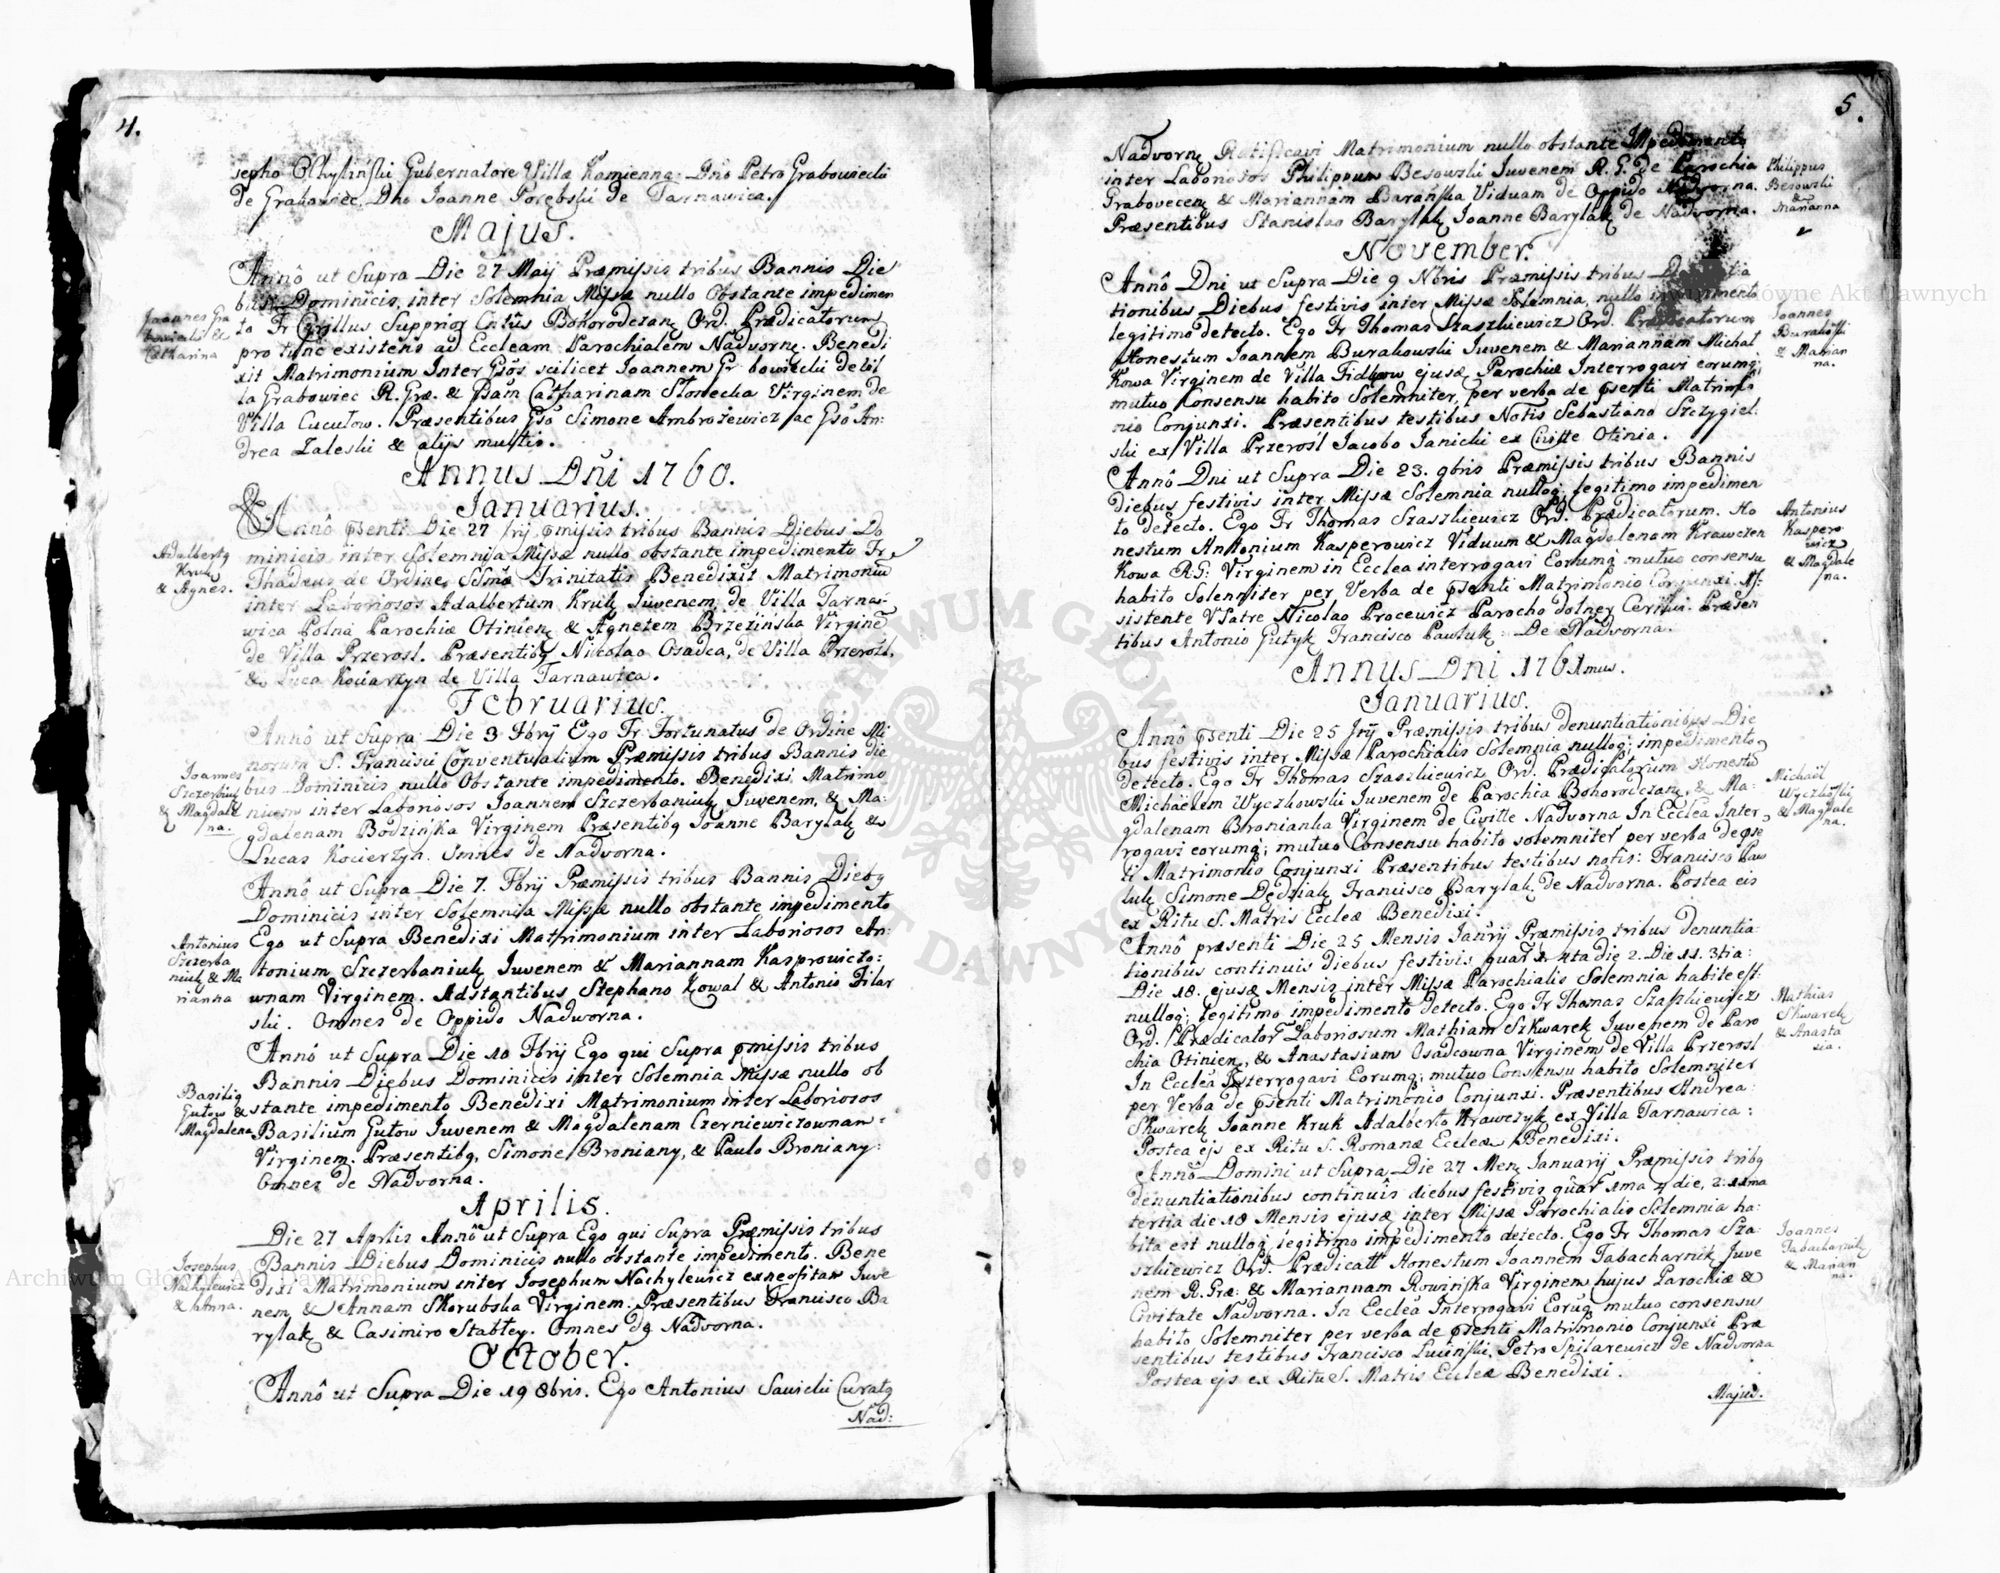 4.
sepho Chyliński Gubernatore Villæ Kamienna. Dno Petro Grabowiecki
de Grabowiec, Dno Joanne Porębski de Tarnawica.
Majus.
Annô ut Supra Die 27 Maij Præmissis tribus Bannis Die
bus Dominicis, inter Solemnia Missæ nullo Obstante impedimen
to Fr Cyrillus Supprior Cntus Bohorodczan Ord. Prædicatorum
pro tunc existens ad Eccleam Parochialem Nadvorne. Benedi
xit Matrimonium Inter Gsos scilicet Joannem Gr bowiecki de Vil
la Grabowiec R. Græ. & Psam Catharinam Stonecka Virginem de
Villa Cucułow. Præsentibus Gso Simone Ambrożewicz ac Gso An:
drea Zaleski & alijs multis.
Joannes Gra
bowiecki &
Catharina
Annus Dni 1760.
Januarius.
Annô psenti Die 27 Jrij pmissis tribus Bannis Diebus Do
minicis inter Solemnia Missæ nullo obstante impedimento Fr
Thadeus de Ordine SSmæ Trinitatis Benedixit Matrimoniu
inter Laboriosos Adalbertum Kruk Juvenem de Villa Tarna:
wica Polna Parochiæ Otinien & Agnetem Brzezinska Virgine
de Villa Przerosl. Præsentibq Nikolao Osadca, de Villa Przerosl,
& Luca Kociarzyn de Villa Tarnawica.
Adalbertq
Kruk
& Agnes.
Februarius.
Annô ut Supra Die 3 Fbrij Ego Fr Fortunatus de Ordine Mi
norum S. Francisci Conventualium Præmissis tribus Bannis die
bus Dominicis nullo Obstante impedimento. Benedixi Matrimo
nium inter Laboriosos Joannem Szczerbaniuk Juvenem, & Ma:
gdalenam Bodzińska Virginem Præsentibq Joanne Barylak &
Lucas Kocierzyn. Omnes de Nadvorna.
Joannes
Szczerbiuk
& Magdale
na.
Annô ut Supra Die 7. Fbrij Præmissis tribus Bannis Diebq
Dominicis inter Solemnia Missæ nullo obstante impedimento
Ego ut Supra Benedixi Matrimonium inter Laboriosos An:
tonium Szczerbaniuk Juvenem & Mariannam Kasprowiczo:
wnam Virginem. Adstantibus Stephano Kowal & Antonio Filar
ski. Omnes de Oppido Nadworna.
Antonius
Szczerba
niuk & Ma
rianna
Annô ut Supra Die 10 Fbrij Ego qui Supra pmissis tribus
Bannis Diebus Dominicis inter Solemnia Missæ nullo ob
stante impedimento Benedixi Matrimonium inter Laboriosos
Basilium Gutow Juvenem & Magdalenam Czerniewiczownam
Virginem. Præsentibq, Simone Broniany, & Paulo Broniany:
Omnes de Nadvorna.
Basiliq
Gutow &
Magdalena
Aprilis.
Die 27 Aprlis Annô ut Supra Ego qui Supra Præmissis tribus
Bannis Diebus Dominicis nullo obstante impedimento. Bene
dixi Matrimonium inter Josephum Nachylewicz exneofitam Juve
nem, & Annam Skorubska Virginem. Præsentibus Francisco Ba
rylak & Casimiro Stabłey. Omnes de Nadvorna.
Josephus
Nachylewicz
& Anna.
October.
Annô ut Supra Die 19 8bris. Ego Antonius Sawicki Curatq
Nad:
5.
Nadvorne Ratificavi Matrimonium nullo obstante Impedimento
inter Laboriosos Philippum Besowski Juvenem R. G. de Parochia
Grabovecen & Mariannam Barańska Viduam de Oppido Nadvorna.
Præsentibus Stanislao Barylak Joanne Barylak de Nadvorna.
Philippus
Besowski
&
Marianna
November.
Annô Dni ut Supra Die 9 Nbris Præmissis tribus
tionibus Diebus festivis inter Missæ Solemnia, nullo impedimento
legitimo detecto. Ego Fr Thomas Szaszkiewicz Ord. Prædicatorum
Honestum Joannem Burakowski Juvenem & Mariannam Michal
Kowa Virginem de Villa Fidkow ejusq Parochiæ Interrogavi eorumq;
mutuo Consensu habito Solemniter, per verba de psenti Matrimo
nio Conjunxi. Præsentibus testibus Notis Sebastiano Szczygiel:
ski ex Villa Przerosl Jacobo Janicki ex Civitte Otinia.
Joannes
Burakowski
& Marian
na.
Annô Dni ut Supra Die 23. 9bris Præmissis tribus Bannis
Diebus festivis inter Missæ Solemnia nulloq; legitimo impedimen
to detecto. Ego Fr Thomas Szaszkiewicz Ord. Prædicatorum. Ho
nestum Antonium Kasperowicz Viduum & Magdalenam Krawczen
Kowa R.G: Virginem in Ecclea interrogavi Eorumq mutuo consensu
habito Solemniter per Verba de psenti Matrimonio Conjunxi. As:
sistente Vsatre Nicolao Procewicz Parocho dolner Cerkwi. Præsen
tibus Antonio Gutyk Francisco Pawluk: De Nadvorna.
Antonius
Kaspero
wicz
& Magdale
na.
Annus Dni 1761mus.
Januarius.
Annô psenti Die 25 Jrij Præmissis tribus denuntiationibus Die
bus festivis inter Missæ Parochialis Solemnia nulloq; impedimento
detecto. Ego Fr Thomas Szaszkiewicz Ord. Prædicatorum Honestu
Michaelem Wyczkowski Juvenem de Parochia Bohorodczan, & Ma:
gdalenam Bronianka Virginem de Civitte Nadvorna In Ecclea Inter
rogavi eorumq; mutuo Consensu habito solemniter per verba de pse
ti Matrimonio Conjunxi Præsentibus testibus notis: Francisco Paw
luk Simone Dędziak Francisco Barylak de Nadvorna. Postea eis
ex Ritu S. Matris Eccleæ Benedixi.
Michaël
Wyczkowski
& Magdale
na.
Annô præsenti Die 25 Mensis Janrij Præmissis tribus denuntia
tionibus continuis diebus festivis quar 1 4ta die 2. Die 11. 3tia:
Die 18. ejusq Mensis inter Missæ Parochialis Solemnia habite est
nulloq; legitimo impedimento detecto. Ego Fr Thomas Szaszkiewicz
Ord. Prædicator Laboriosum Mathiam Szkwarek Juvenem de Paro
chia Otinien, & Anastasiam Osadcowna Virginem de Villa Przerosl
In Ecclea Interrogavi Eorumq; mutuo Consensu habito Solemniter
per Verba de psenti Matrimonio Conjunxi. Præsentibus Andrea:
Skwarek Joanne Kruk Adalberto Krawczyk ex Villa Tarnawica:
Postea ejs ex Ritu S. Romanæ Eccleæ Benedixi.
Mathias
Skwarek
& Anasta
sia.
Annô Domini ut Supra Die 27 Men Januarij Præmissis tribq
denuntiationibus continuis diebus festivis quar 1ma 4 die, 2: 11ma
tertia die 18 Mensis ejusq inter Missæ Parochialis Solemnia ha:
bita est nulloq legitimo impedimento detecto. Ego Fr Thomas Sza:
szkiewicz Ord. Prædicatt Honestum Joannem Tabacharnik Juve
nem R. Græ: & Mariannam Rowińska Virginem hujus Parochiæ &
Civitate Nadvorna. In Ecclea Interrogavi Eorumq mutuo consensu
habito Solemniter per verba de psenti Matrimonio Conjunxi Præ
sentibus testibus Francisco Luciński, Petro Spilarewicz de Nadvorna
Postea ejs ex Ritu S. Matris Eccleæ Benedixi.
Joannes
Tabacharnik
& Marian
na.
Majus.
Archiwum Główne Akt Dawnych
Archiwum Główne Akt Dawnych
ARCHIWUM GŁÓWNE AKT DAWNYCH